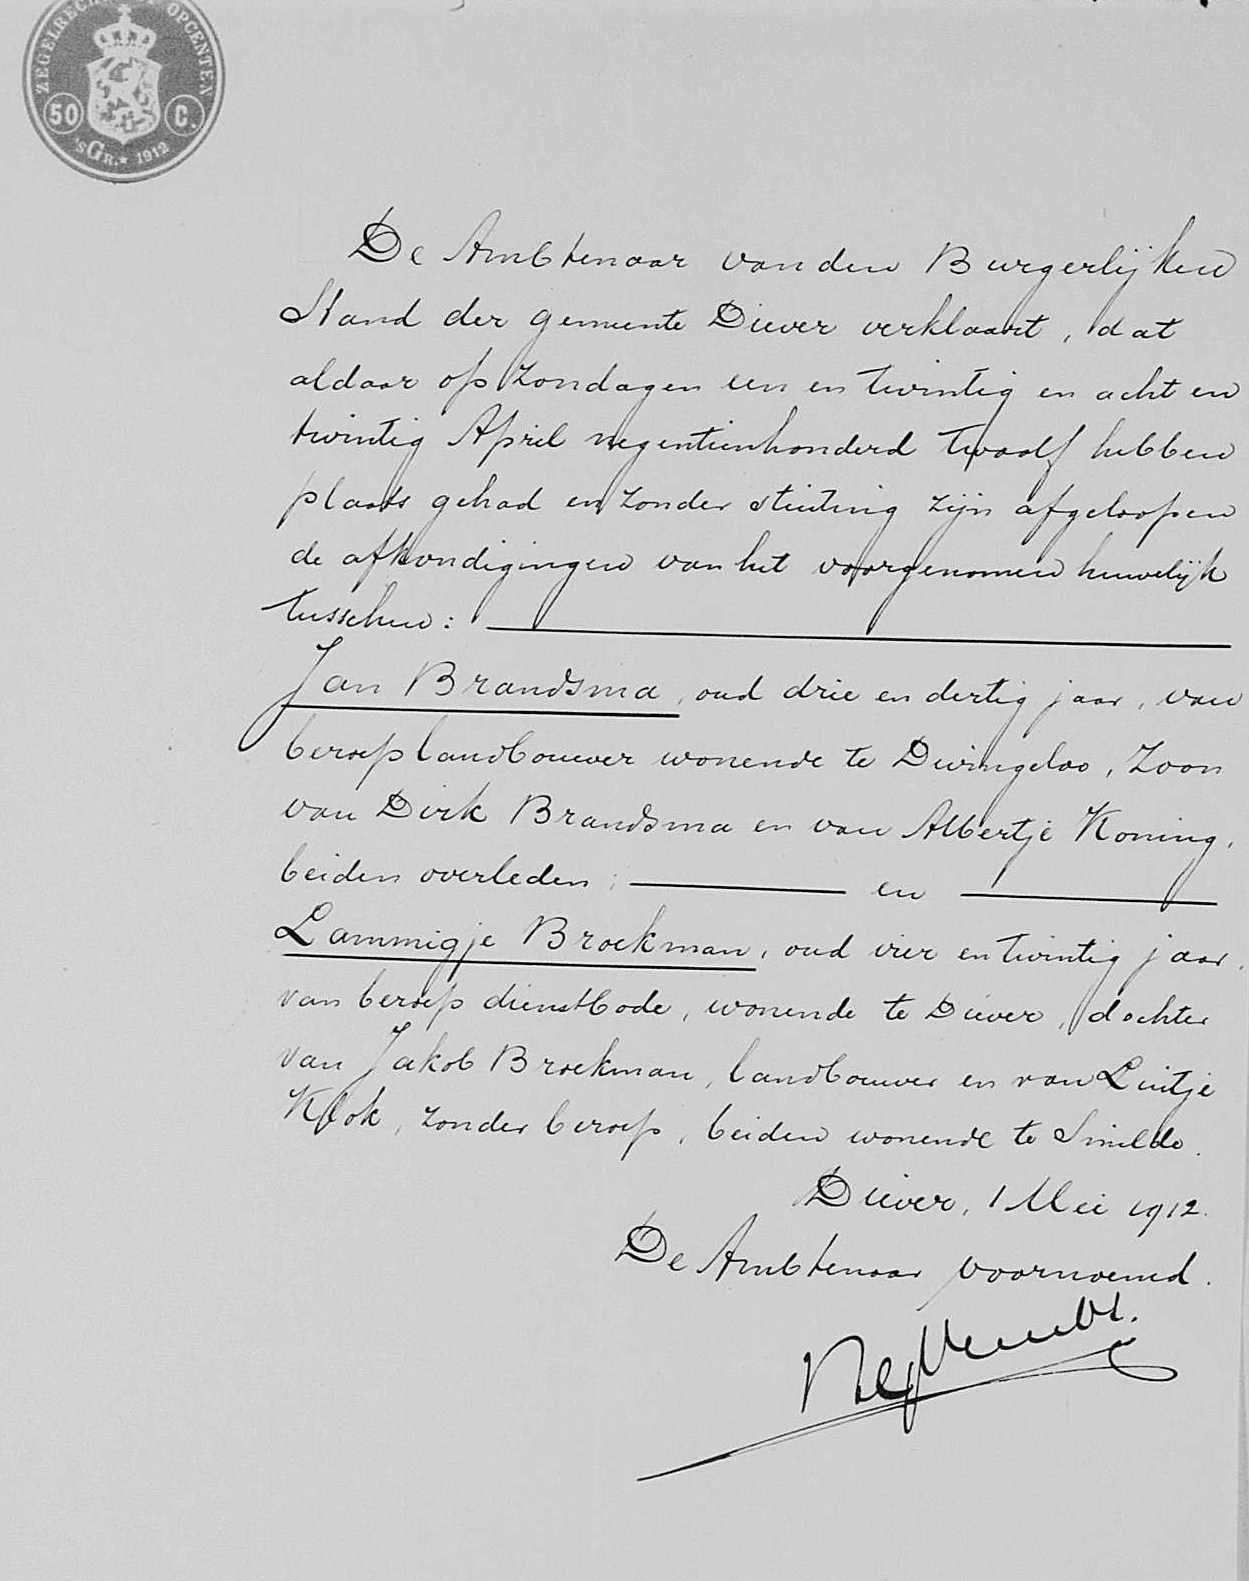 ZEGELRECHT OPCENTEN
50 C.
'sGR. * 1912
De Ambtenaar van den Burgerlijken
Stand der gemeente Diever verklaart, dat
aldaar op zondagen een en twintig en acht en
twintig April negentienhonderd twaalf hebben
plaats gehad en zonder stuiting zijn afgeloopen
de afkondigingen van het voorgenomen huwelijk
tusschen:
Jan Brandsma, oud drie en dertig jaar, van
beroep landbouwer wonende te Dwingeloo, zoon
van Dirk Brandsma en van Albertje Koning,
beiden overleden; en
Lammigje Broekman, oud vier en twintig jaar,
van beroep dienstbode, wonende te Diever, dochter
van Jakob Broekman, landbouwer en van Luitje
Kok, zonder beroep, beiden wonende te Smilde.
Diever, 1 Mei 1912.
De Ambtenaar voornoemd.